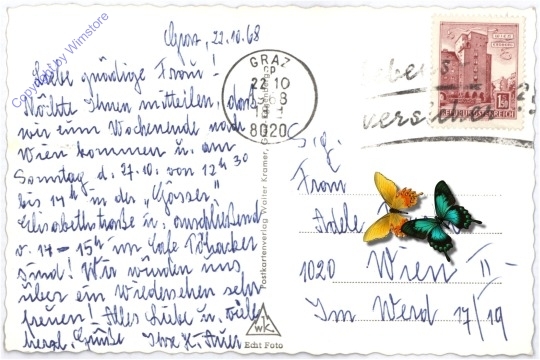 Graz, 22.10.68
Liebe gnädige Frau!
Möchte Ihnen mitteilen, daß
wir zum Wochenende nach
Wien kommen u. am
Sonntag d. 27.10. von 12h 30
bis 14h in der "Gösser"
Elisabethstraße u. anschließend
v. 14 - 15h im Cafe
sind! Wir würden uns
über ein Wiedersehen sehr
freuen! Alles Liebe u. viele
herzl. Grüße Ihre K. Auer
Copyright by Wimstore
GRAZ
GP
22 10
8020
REPUBLIK ÖSTERREICH
Postkartenverlag Walter Kramer, Graz
WK
Echt Foto
S. g.
Frau
Adele
1020 Wien II
Im Werd 17/19